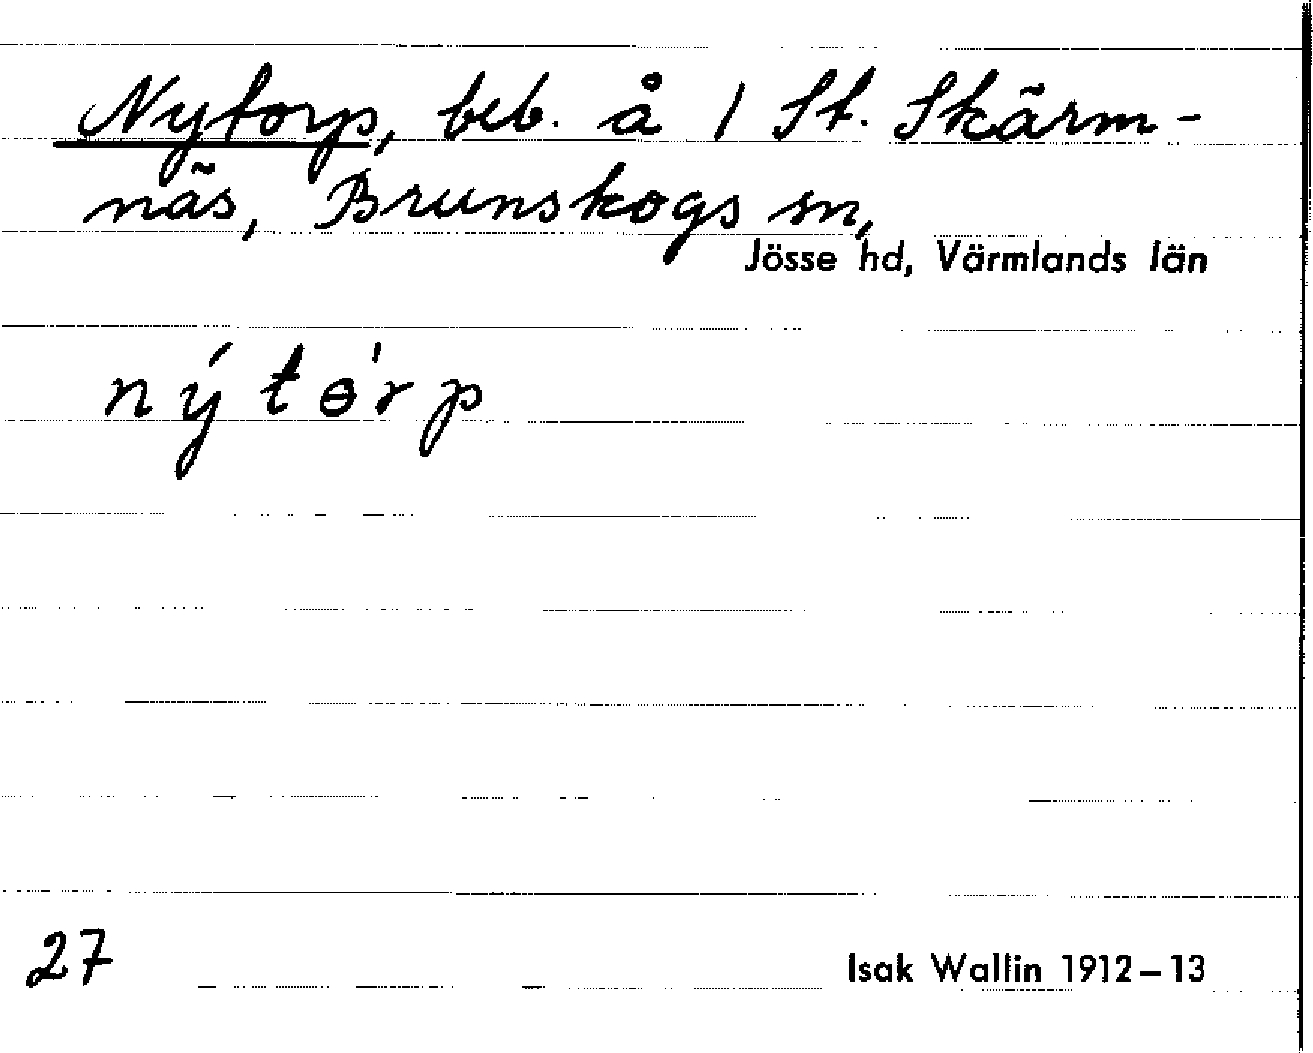 Nytorp, beb. å 1 St. Skärm-
näs, Brunskogs sn,
Jösse hd, Värmlands län
ný tɵ́r p
27
Isak Wallin 1912–13